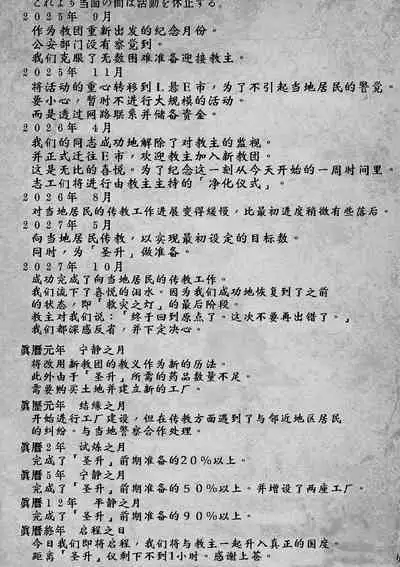 これより当面の間は活動を休止する。
2025年 9月
作为教团重新出发的纪念月份。
公安部门没有察觉到。
我们克服了无数困难准备迎接教主。
2025年 11月
将活动的重心转移到L县E市，为了不引起当地居民的警觉。
要小心，暂时不进行大规模的活动。
而是透过网路联系并储备资金。
2026年 4月
我们的同志成功地解除了对教主的监视。
并正式迁往E市，欢迎教主加入新教团。
这是无比的喜悦。为了纪念这一刻从今天开始的一周时间里。
志工们将进行由教主主持的「净化仪式」。
2026年 8月
对当地居民的传教工作进展变得缓慢，比最初进度稍微有些落后。
2027年 5月
向当地居民传教，以实现最初设定的目标数。
同时，为「圣升」做准备。
2027年 10月
成功完成了向当地居民的传教工作。
我们流下了喜悦的泪水。因为我们成功地恢复到了之前
的状态，即「救灾之灯」的最后阶段。
教主对我们说：「终于回到原点了。这次不要再出错了。」
我们都深感反省，并下定决心。
眞暦元年 宁静之月
将改用新教团的教义作为新的历法。
此外由于「圣升」所需的药品数量不足。
需要购买土地并建立新的工厂。
眞歷元年 结缘之月
开始进行工厂建设，但在传教方面遇到了与邻近地区居民
的纠纷。与当地警察合作处理。
眞暦2年 试炼之月
完成了「圣升」前期准备的20%以上。
眞暦5年 宁静之月
完成了「圣升」前期准备的50%以上。并增设了两座工厂。
眞暦12年 平静之月
完成了「圣升」前期准备的90%以上。
眞暦終年 启程之日
今日我们即将启程，我们将与教主一起升入真正的国度。
距离「圣升」仅剩下不到1小时。感谢上苍。